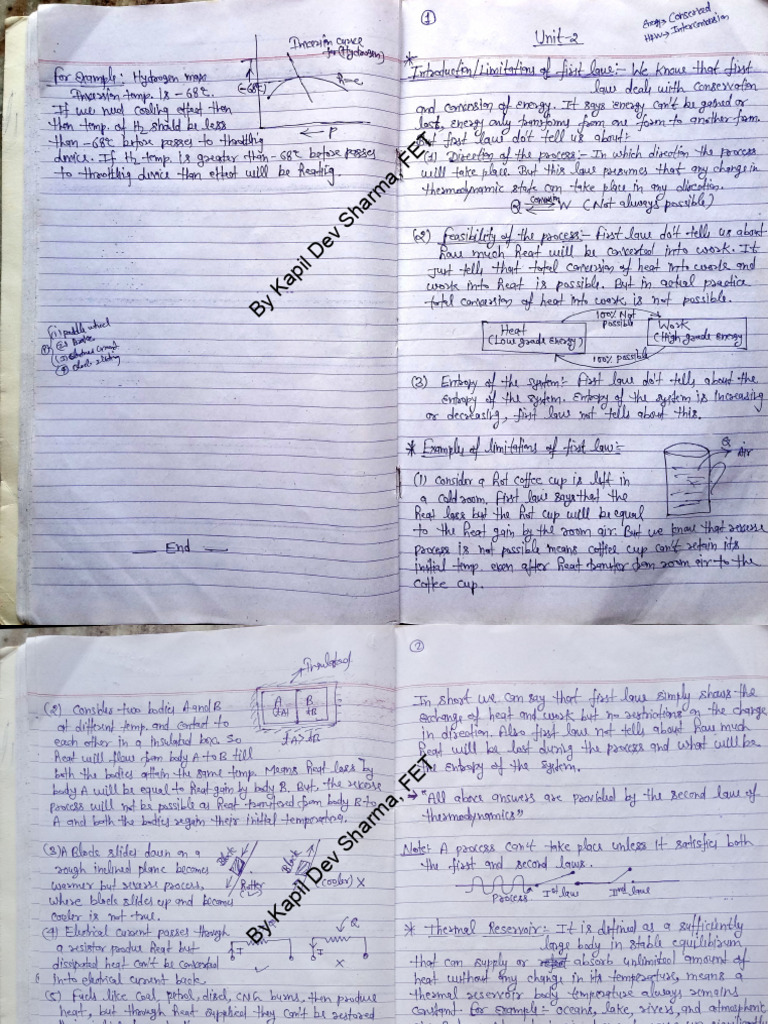 for Example: Hydrogen max
Inversion temp. is -68°c.
If we need cooling effect then
then temp. of H2 should be less
than -68°c before passes to throttling
device. If H2 temp. is greater than -68°c before passes
to throttling device then effect will be heating.
Inversion curve
for (Hydrogen)
-68°c
← P
(1) paddle wheel
End
By Kapil Dev Sharma, FET
1
Unit-2
Energy → Conserved
H&W → Interconversion
* Introduction/Limitations of first law:- We know that first
law deals with conservation
and conversion of energy. It says energy can't be gained or
lost, energy only transforms from one form to another form.
first law do't tell us about:
(1) Direction of the process:- In which direction the process
will take place. But this law presumes that any change in
thermodynamic state can take place in any direction.
Q ⇌ W (Not always possible)
conversion
(2) feasibility of the process:- first law do't tells us about
how much heat will be converted into work. It
just tells that total conversion of heat into work and
work into heat is possible. But in actual practice
total conversion of heat into work is not possible.
100% Not
Possible
Heat
(Low grade energy)
Work
(High grade energy)
100% possible
(3) Entropy of the system:- first law do't tells about the
entropy of the system. Entropy of the system is increasing
or decreasing, first law not tells about this.
* Examples of limitations of first law:-
Q
Air
(1) consider a hot coffee cup is left in
a cold room. first law says that the
heat loss but the hot cup will be equal
to the heat gain by the room air. But we know that reverse
process is not possible means coffee cup can't retain its
initial temp even after heat transfer from room air to the
coffee cup.
Insulated
(2) Consider two bodies A and B
at different temp. and contact to
each other in a insulated box. So
heat will flow from body A to B till
both the bodies attain the same temp. Means heat loss by
body A will be equal to heat gain by body B. But, the reverse
process will not be possible as heat transfered from body B to
A and both the bodies regain their initial temperatures.
A
tA
B
tB
tA>tB
(3) A Block slides down on a
rough inclined plane becomes
warmer but reverse process,
where block slides up and becomes
cooler is not true.
Block
Block
(cooler) X
(4) Electrical current passes through
a resistor produce heat but
dissipated heat can't be converted
into electrical current back.
I
I
X
(5) Fuels like coal, petrol, disel, CNG burns, then produce
heat, but through heat supplied they can't be restored
By Kapil Dev Sharma, FET
2
In short we can say that first law simply shows the
exchange of heat and work but no restrictions on the change
in direction. Also first law not tells about how much
heat will be lost during the process and what will be
the entropy of the system.
→ "All above answers are provided by the second law of
thermodynamics"
Note: A process can't take place unless it satisfies both
the first and second laws.
Process
Ist law
IInd law
* Thermal Reservoir:- It is defined as a sufficiently
large body in stable equilibrium
that can supply or absorb unlimited amount of
heat without any change in its temperature, means a
thermal reservoir body temperature always remains
constant. for example:- oceans, lake, rivers, and atmospheric